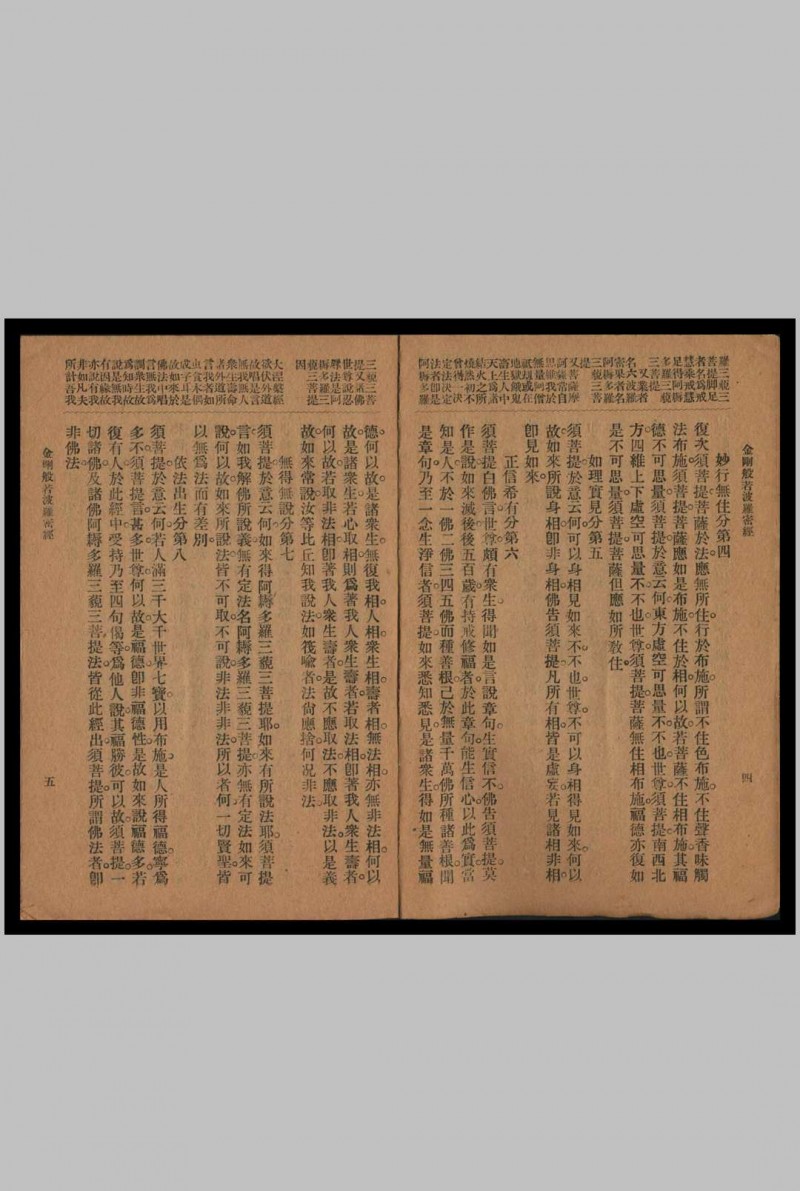 金剛般若波羅密經
四
妙行無住分第四
復次須菩提菩薩於法應無所住行於布施所謂不住色布施不住聲香味觸
法布施須菩提菩薩應如是布施不住於相何以故若菩薩不住相布施其福
德不可思量須菩提於意云何東方虛空可思量不不也世尊須菩提南西北
方四維上下虛空可思量不不也世尊須菩提菩薩無住相布施福德亦復如
是不可思量須菩提菩薩但應如所敎住
如理實見分第五
須菩提於意云何可以身相見如來不不也世尊不可以身相得見如來何以
故如來所說身相卽非身相佛告須菩提凡所有相皆是虛妄若見諸相非相
卽見如來
正信希有分第六
須菩提白佛言世尊頗有衆生得聞如是言說章句生實信不佛告須菩提莫
作是說如來滅後後五百歲有持戒修福者於此章句能生信心以此爲實當
知是人不於一佛二佛三四五佛而種善根已於無量千萬佛所種諸善根聞
是章句乃至一念生淨信者須菩提如來悉知悉見是諸衆生得如是無量福
德何以故是諸衆生無復我相人相衆生相壽者相無法相亦無非法相何以
故是諸衆生若心取相則爲著我人衆生壽者若取法相卽著我人衆生壽者
何以故若取非法相卽著我人衆生壽者是故不應取法不應取非法以是義
故如來常說汝等比丘知我說法如筏喻者法尙應捨何况非法
無得無說分第七
須菩提於意云何如來得阿耨多羅三藐三菩提耶如來有所說法耶須菩提
言如我解佛所說義無有定法名阿耨多羅三藐三菩提亦無有定法如來可
說何以故如來所說法皆不可取不可說非法非非法所以者何一切賢聖皆
以無爲法而有差別
依法出生分第八
須菩提於意云何若人滿三千大千世界七寶以用布施是人所得福德寧爲
多不須菩提言甚多世尊何以故是福德卽非福德性是故如來說福德多若
復有人於此經中受持乃至四句偈等爲他人說其福勝彼何以故須菩提一
切諸佛及諸佛阿耨多羅三藐三菩提法皆從此經出須菩提所謂佛法者卽
非佛法
金剛般若波羅密經
五